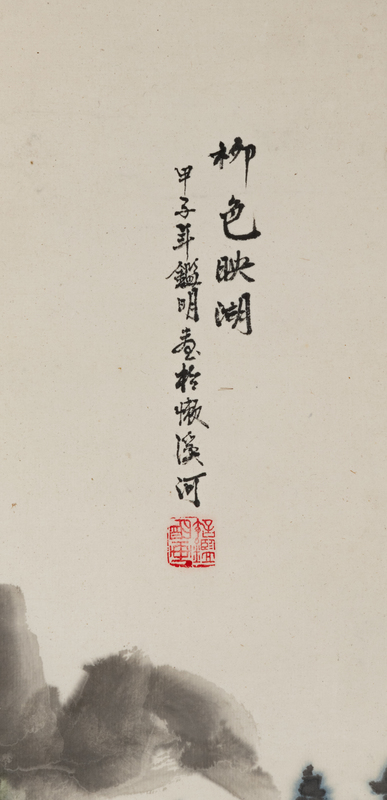 柳色映湖
甲子年鑑明畫於懶溪河